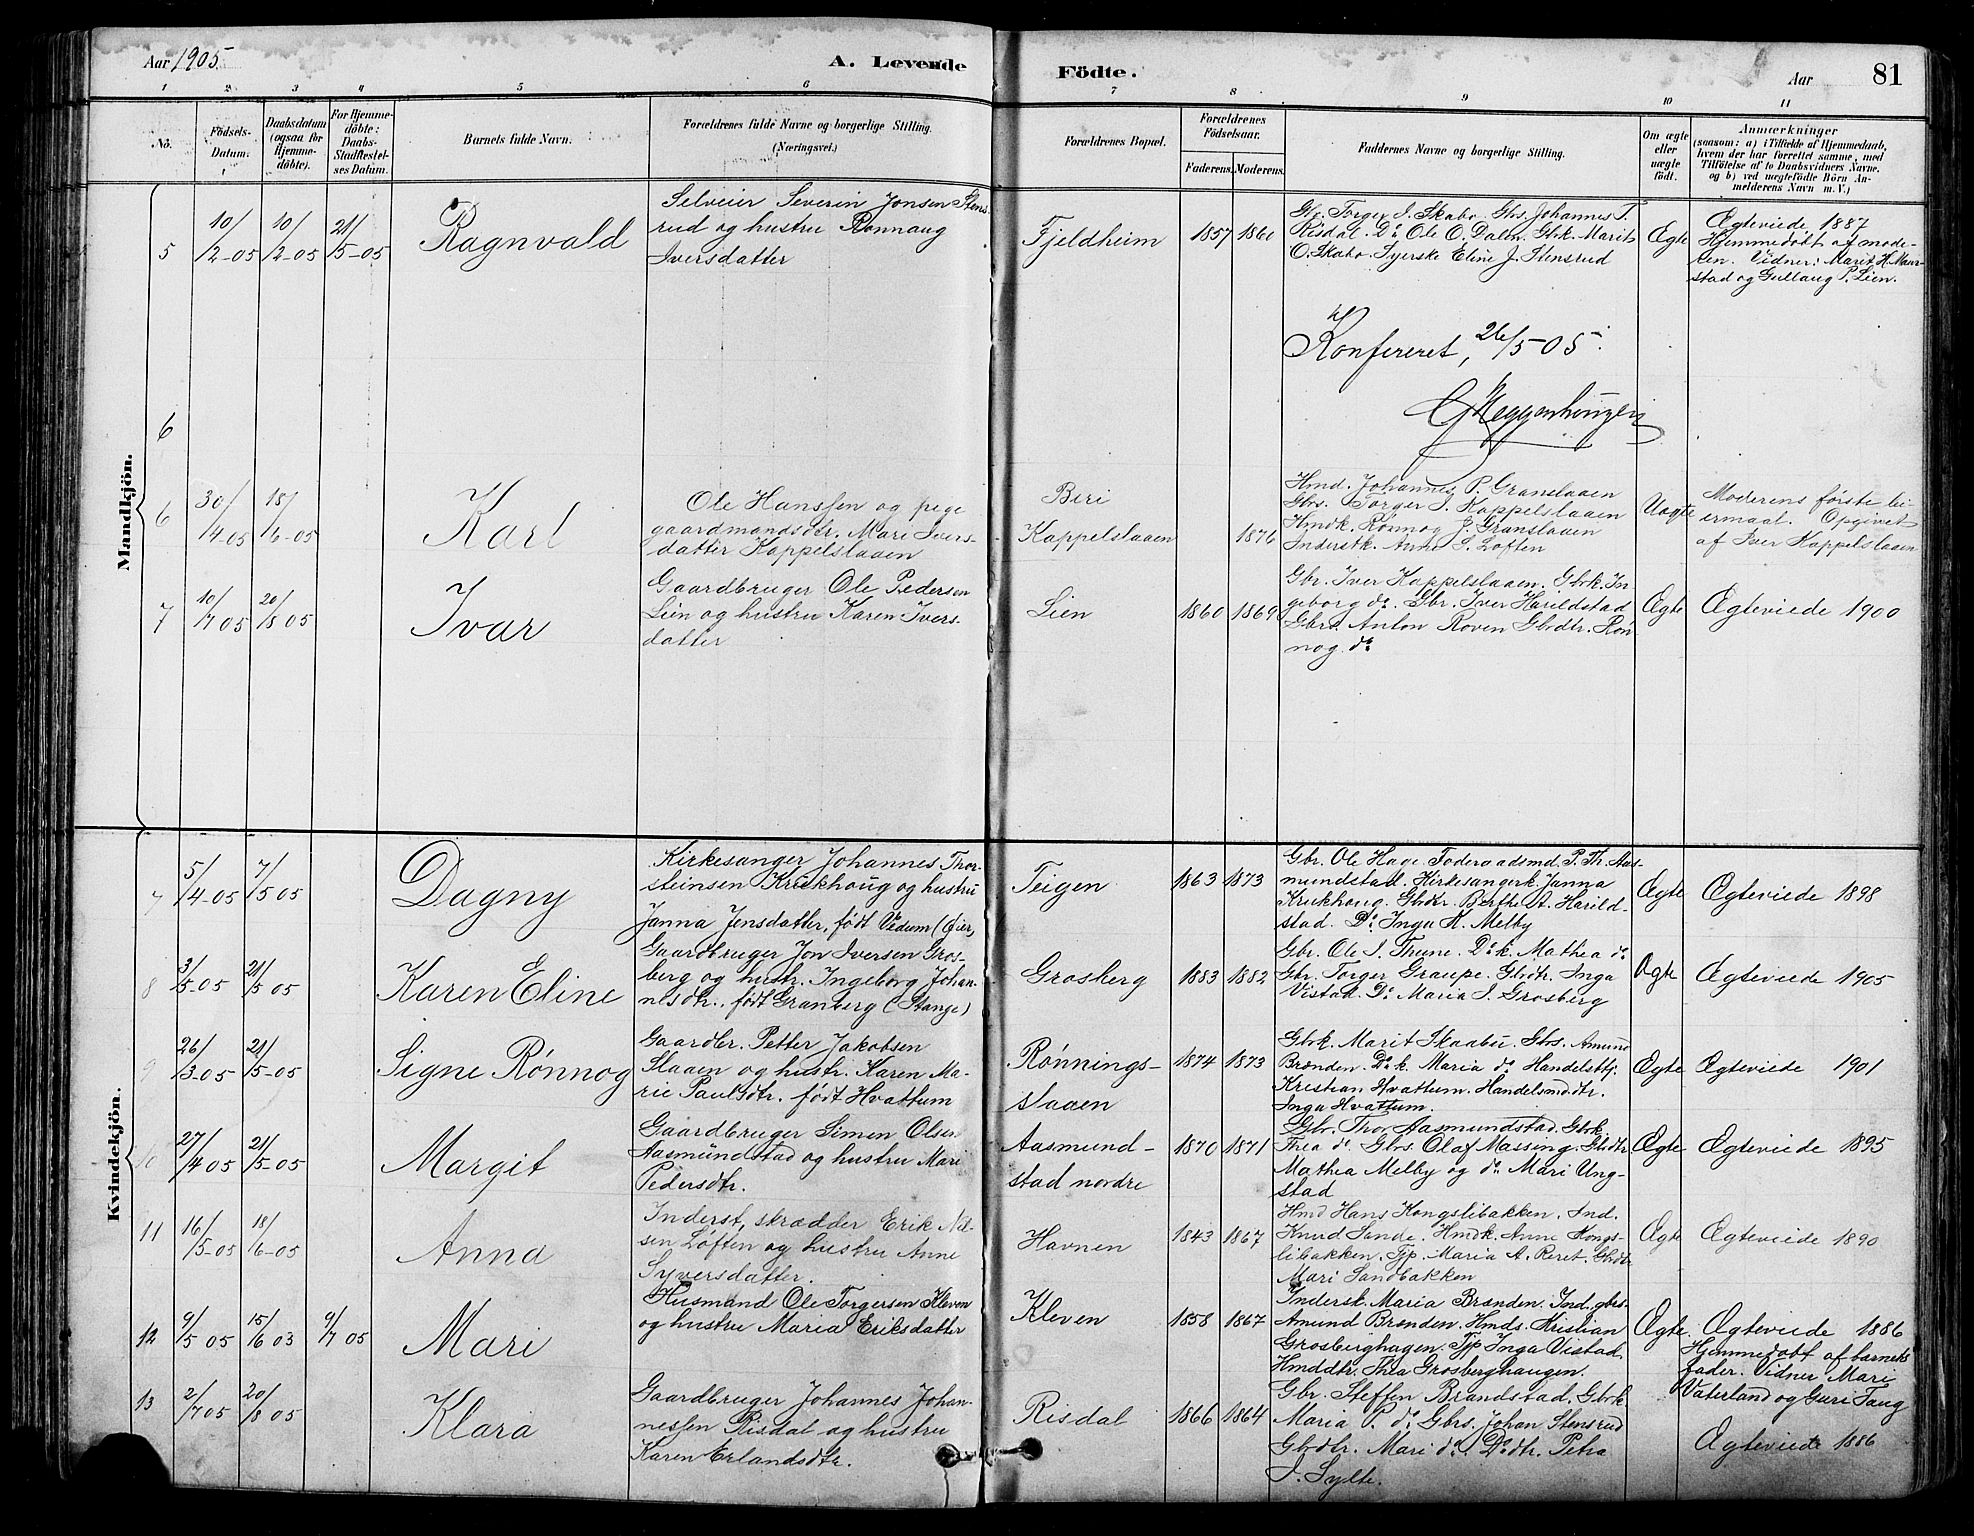 Aar 1905.
A. Levende Födte.
Aar
81
1 2 3 4 5 6 7 8 9 10 11
No.
Födsels-
Datum.
Daabsdatum
(ogsaa for
Hjemme-
döbte).
For Hjemme-
döbte:
Daabs-
Stadfæstel-
ses Datum.
Barnets fulde Navn.
Forældrenes fulde Navne og borgerlige Stilling.
(Næringsvei.)
Forældrenes Bopæl.
Forældrenes
Födselsaar.
Faderens. Moderens.
Faddernes Navne og borgerlige Stilling.
Om ægte
eller
uægte
födt.
Anmærkninger
(saasom: a) i Tilfælde af Hjemmedaab,
hvem der har forrettet samme, med
Tilföielse af to Daabsvidners Navne,
og b) ved uegtefödte Börn An-
melderens Navn m. V.)
Mandkjön.
5
10/2-05
10/2-05
21/5-05
Ragnvald
Selveier Severin Jonsen Stens-
rud og hustru Rønnaug
Iversdatter
Fjeldheim
1857 1860
Gbr. Torger I. Skabo. Gbs. Johannes T.
Risdal. Do Ole O. Dalen. Gbrk. Marit
O. Skabo. Syerske Eline J. Stensrud
Ægte
Ægteviede 1887
Hjemmedøbt af mode-
ren. Vidner: Marit H. Maur-
stad og Gullaug P. Lien.
Konfereret, 26/5-05.
6
6
30/4 05
18/6-05
Karl
Ole Hansen og pige
gaardmandsdtr. Mari Ivers-
datter Kappelslaaen
Beri
Kappelslaaen
1876
Hmd. Johannes P. Granslaaen
Gbrs. Torger I. Kappelslaaen
Hmdk. Rønnog J. Granslaaen
Inderstk. Anne S. Løften
Uægte
Moderens første lei-
ermaal. Opgivet
af Iver Kappelslaaen
7
10/7 05
20/8 05
Ivar
Gaardbruger Ole Pedersen
Lien og hustru Karen Ivers-
datter
Lien
1860 1869
Gbr. Iver Kappelslaaen. Gbrk. In-
geborg do. Gbr. Iver Harildstad
Gbrs. Anton Roven Gbrdtr. Røn-
nog do
Ægte
Ægteviede 1900
Kvindekjön.
7
5/4-05
7/5 05
Dagny
Kirkesanger Johannes Thor-
steinsen Krukhoug og hustru
Janna Jensdatter, født Vedum (Øier)
Teigen
1863 1873
Gbr. Ole Hage Foderaadsmd. P. Th. Aas-
mundstad. Kirkesangerk. Janna
Krukhoug. Gbdtr. Berthe A. Harild-
stad. Do. Inga K. Melby
Ægte
Ægteviede 1898
8
3/5-05
21/5 05
Karen Eline
Gaardbruger Jon Iversen Gros-
berg og hustr. Ingeborg Johan-
nesdtr. født Granberg (Stange)
Grosberg
1883 1882
Gbr. Ole I. Thune. Do k. Mathea do
Gbr. Torger Graupe. Gbdtr. Inga
Vistad. Do Maria I. Grosberg
Ægte
Ægteviede 1905
9
26/3-05
21/5-05
Signe Rønnog
Gaardbr. Petter Jakobsen
Slaaen og hustr. Karen Ma-
rie Paulsdtr. født Hvattum
Rønnings-
slaaen
1874 1873
Gbrk. Marit Skaabu. Gbrs. Amund
Brænden. Do k. Maria do Handelsbtj.
Kristian Hvattum. Handelsmddtr.
Inga Hvattum.
Ægte
Ægteviede 1901
10
27/4 05
21/5-05
Margit
Gaardbruger Simen Olsen
Aasmundstad og hustru Mari
Pedersdtr.
Aasmund-
stad nordre
1870 1871
Gbr. Thor Aasmundstad. Gbrk.
Thea do Gbrs. Olaf Massing. Gbdtr
Mathea Melby og do Mari Ung-
stad
Ægte
Ægteviede 1895
11
16/5-05
18/6-05
Anna
Inderst, skrædder Erik Nil-
sen Løften og hustru Anne
Syversdatter.
Havnen
1843 1867
Hmd Hans Kongslibakken. Ind.
Knud Sande. Hmdk. Anne Kongs-
libakken. Tjp. Maria A. Reret. Gbdtr
Mari Sandbakken
Ægte
Ægteviede 1890
12
9/5 05
15/6 03
9/7 05
Mari
Husmand Ole Torgersen Kleven
og hustru Maria Eriksdatter
Kleven
1858 1867
Indersk. Maria Brænden. Ind. gbrs.
Amund Brænden. Hmds. Kristian
Grosberghagen. Tjp Inga Vistad
Hmddtr. Thea Grosberghaugen.
Ægte.
Ægteviede 1886
Hjemmedøbt af barnets
fader. Vidner Mari
Vaterland og Guri Taug
13
2/7 05
20/8 05
Klara
Gaardbruger Johannes Johan-
nessen Risdal og hustru
Karen Erlandsdtr.
Risdal
1866 1864
Gbr. Steffen Brandstad. Gbrk.
Maria P. do. Gbrs. Johan Stensrud
Gbrdtr. Mari do. Do dtr. Petra
I. Sylte.
Ægteviede 1886